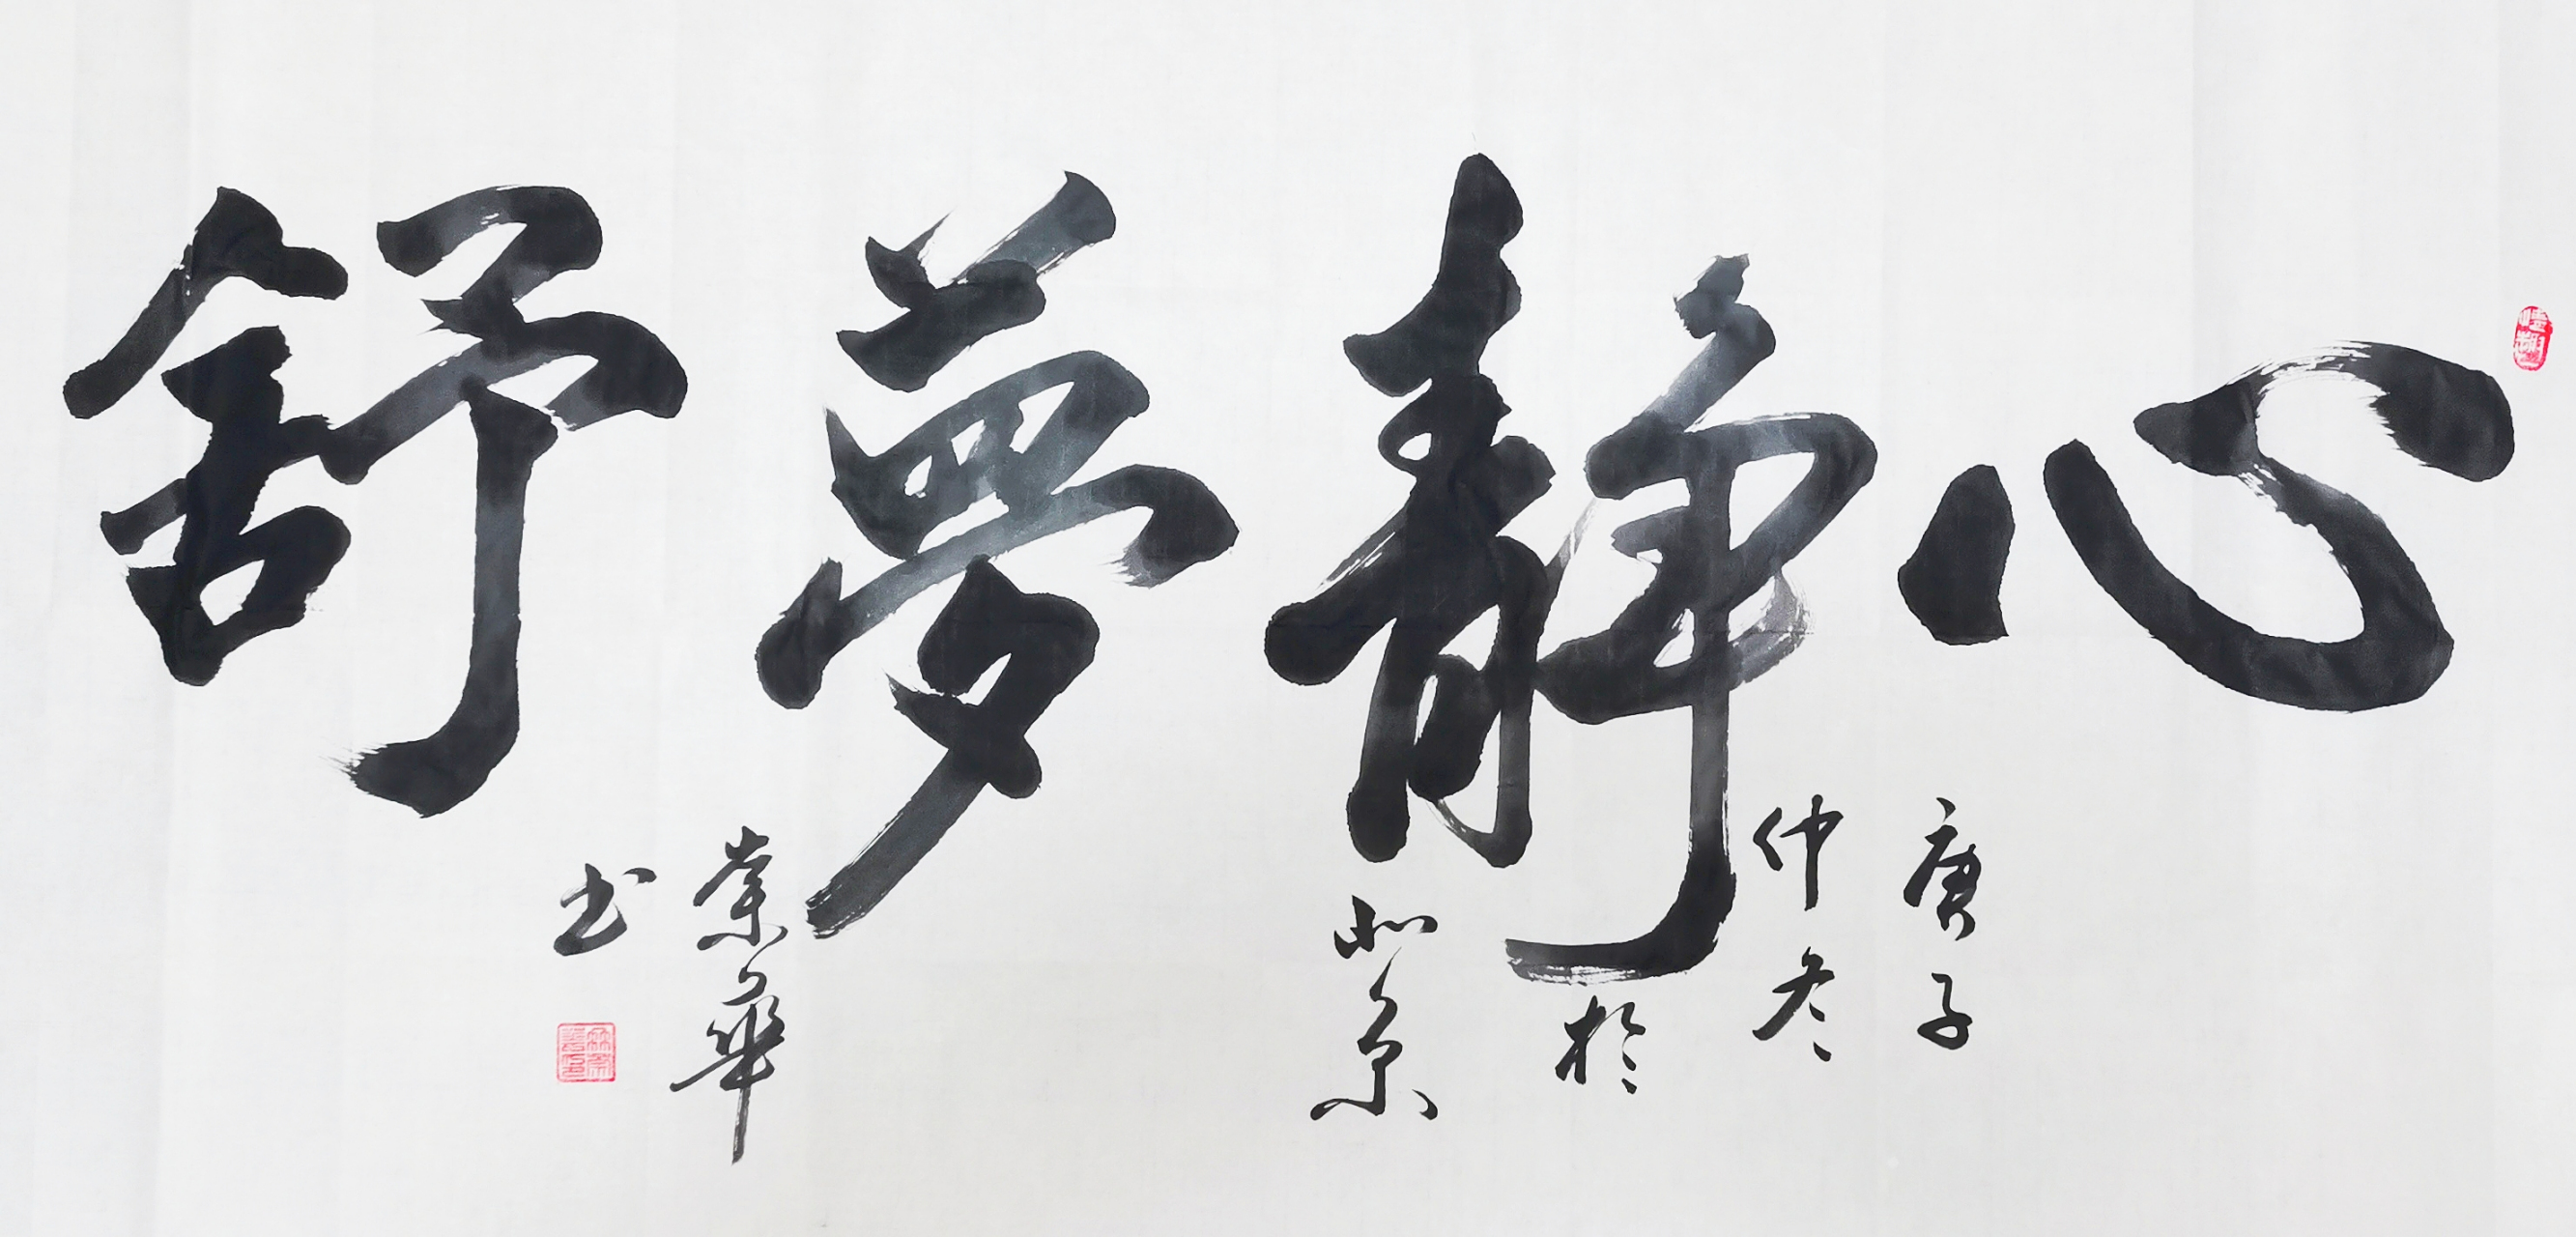 心靜夢舒
庚子
仲冬
於
北京
業華
书